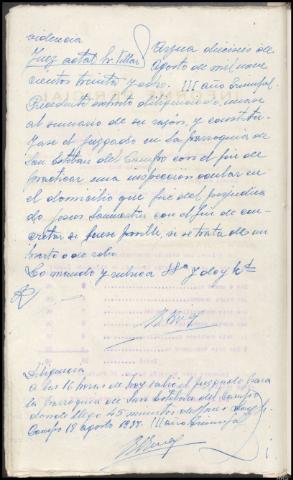 videncia
Juez actal Sr. Villar
Arzua diecisis de
Agosto de mil nove
cientos treinta y ocho. III año triunfal.
Precedente exhorto diligenciado, unase
al sumario de su razón, y constitu
yase el juzgado en la parroquia de
San Esteban del Campo con el fin de
practicar una inspeccion ocular en
el domicilio que fue del perjudica
do con el fin de con
cretar si fuese posible, si se trata de un
hurto o de robo.
Lo mando y rubrica S.Sª y doy fe
Diligencia
a las 16 horas de hoy salio el juzgado para
la parroquia de San Esteban del Campo
donde llego 45 minutos despues. Doy fe.
Campo 18 agosto 1938. III año triunfal